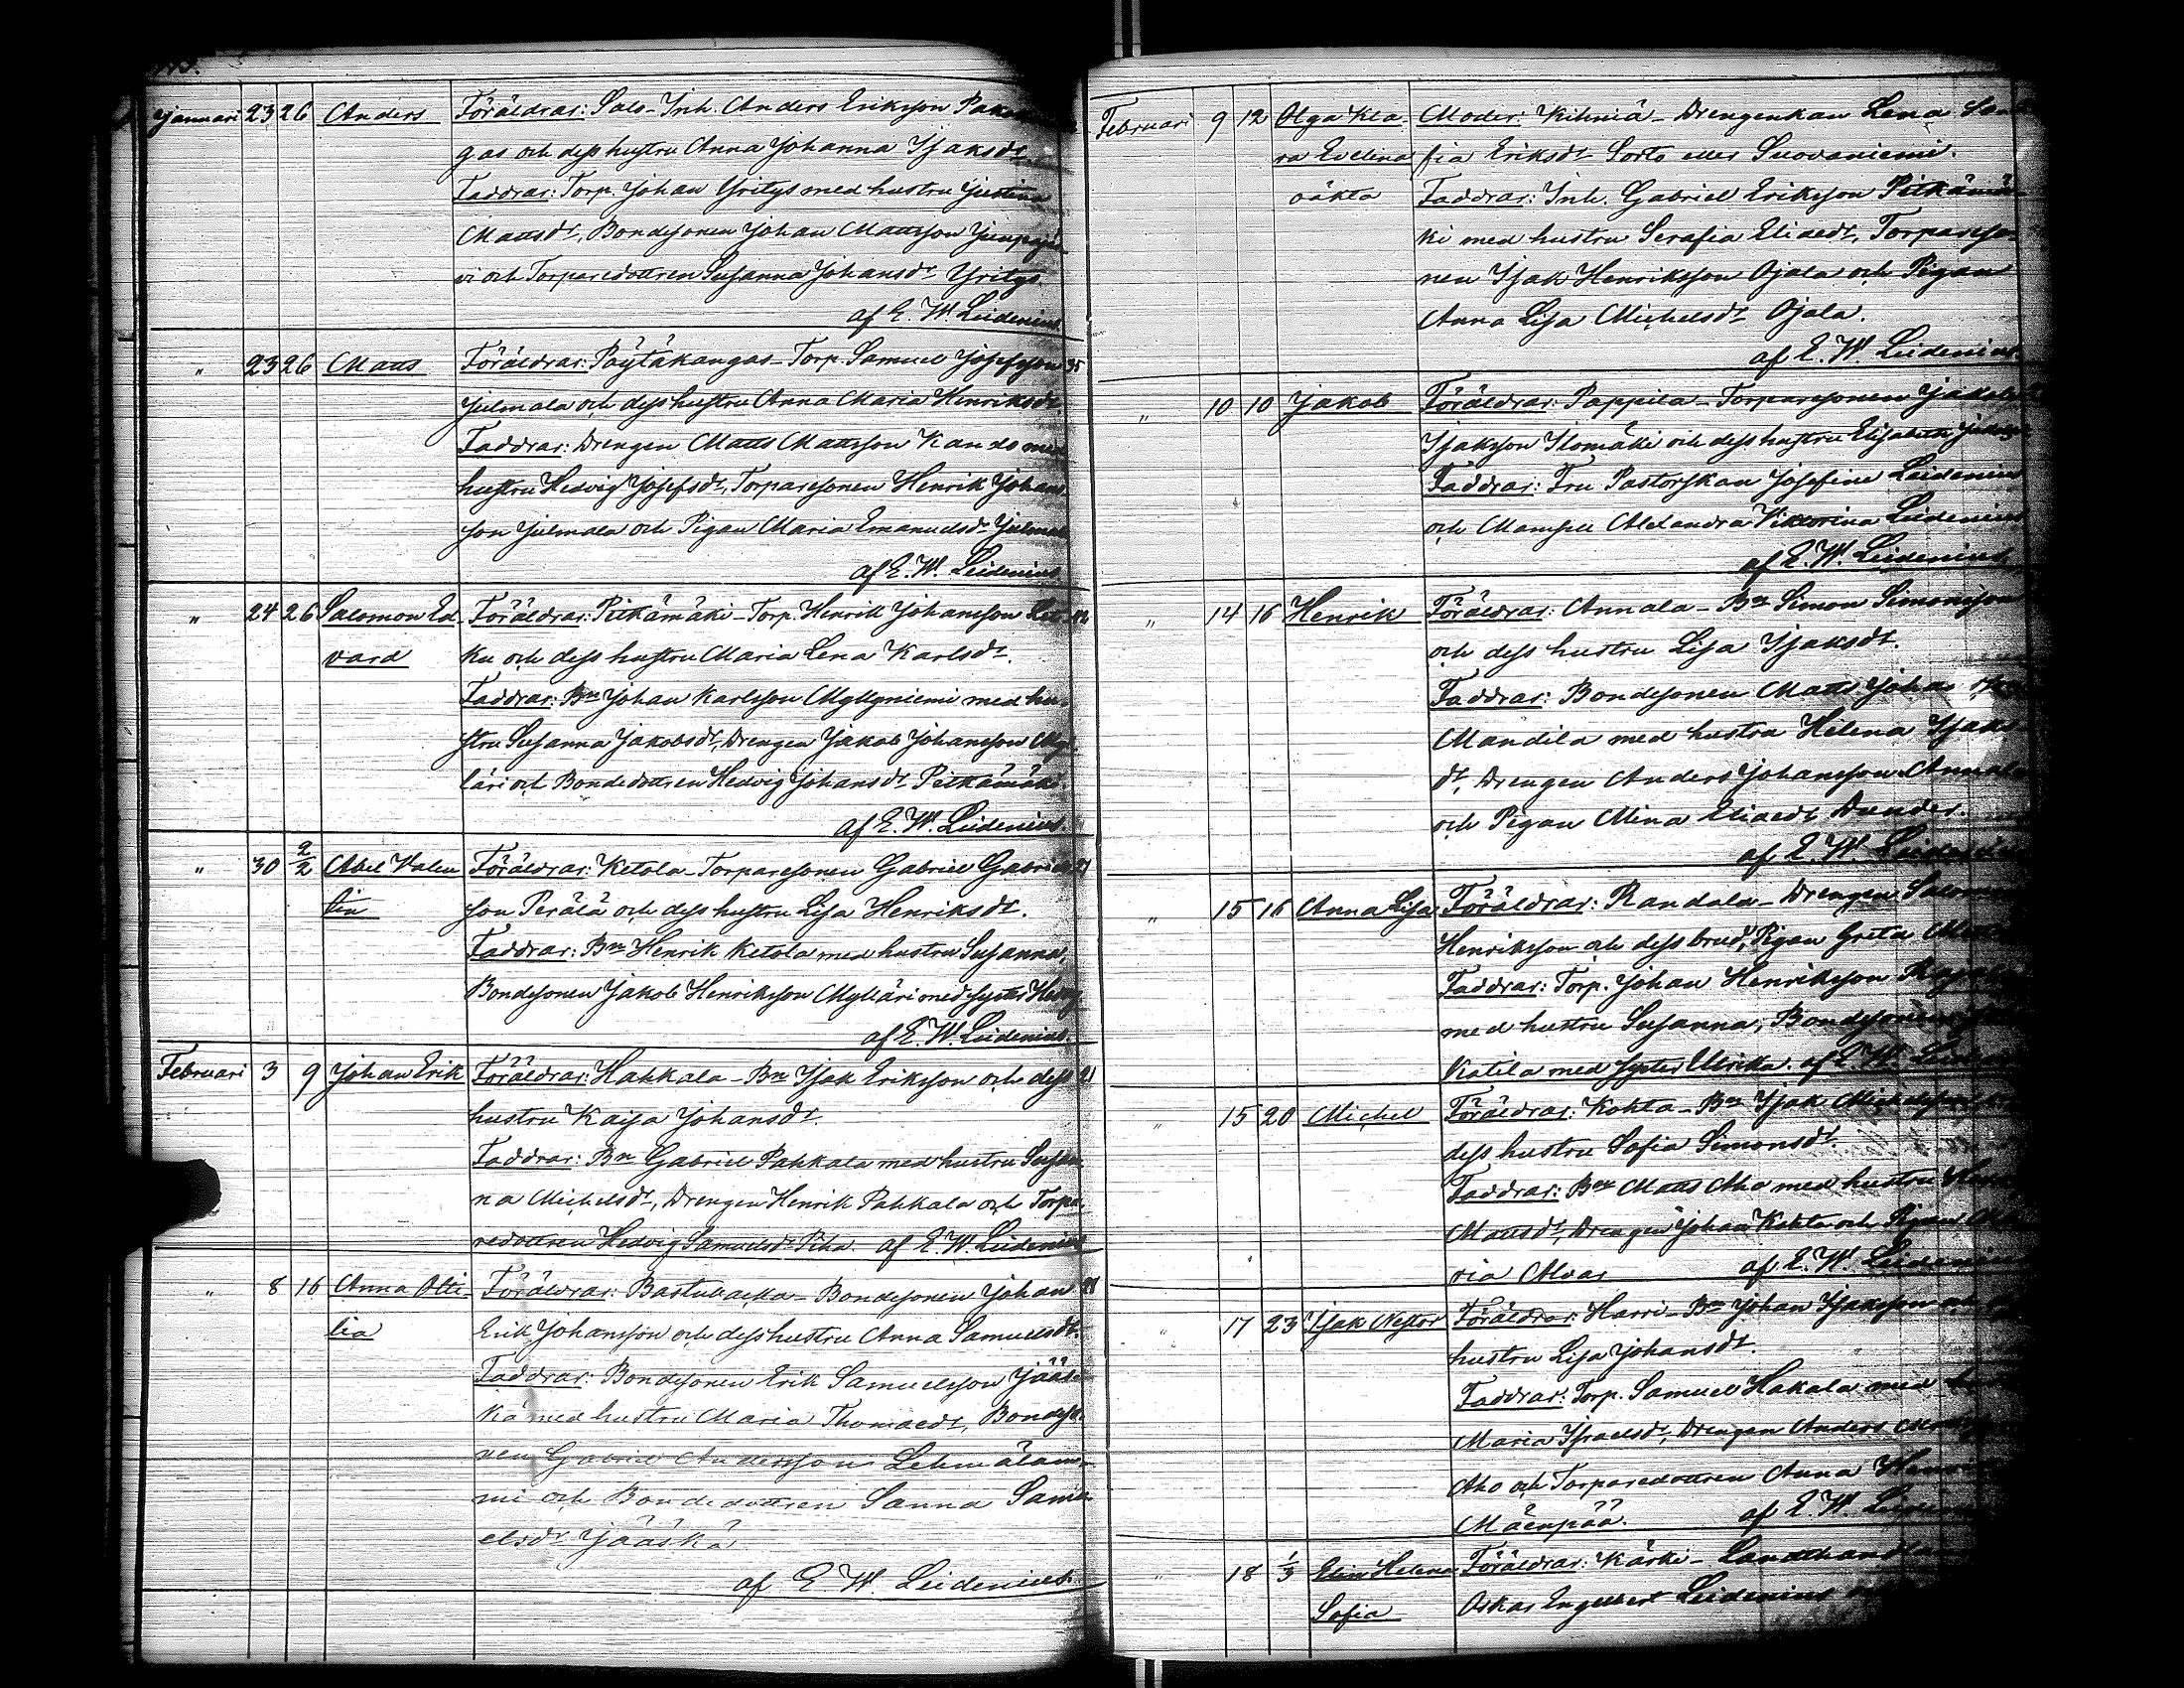 Januari 23 26 Anders Föräldrar: Salo-Inh. Anders Eriksson
gas och dess hustru Anna Johanna Isaksdr.
Faddrar: Torp. Johan Yritys med hustru Justina
Mattsdr, Bondesonen Johan Mattsson
vi och Torparedottren Susanna Johansdr Yritys.
af E. W. Leidenius.
" 23 26 Matts Föräldrar: Pöytäkangas-Torp. Samuel Josefsson 35
Julmala och dess hustru Anna Maria Henriksdr.
Faddrar: Drengen Matts Mattsson Kando med
hustru Hedvig Josefsdr, Torparesonen Henrik Johans
son Julmala och Pigan Maria Emanuelsdr
af E. W. Leidenius.
" 24 26 Salomon Ed- Föräldrar: Pitkämäki-Torp. Henrik Johansson
vard ku och dess hustru Maria Lena Karlsdr.
Faddrar: Bn Johan Karlsson Myllyniemi med hu-
stru Susanna Jakobsdr, Drengen Jakob Johansson
läri och Bondedottren Hedvig Johansdr Pitkämäki.
af E. W. Leidenius.
" 30 2/2 Abel Valen Föräldrar: Ketola-Torparesonen Gabriel Gabriels
tin son Perälä och dess hustru Lisa Henriksdr.
Faddrar: Bn Henrik Ketola med hustru Susanna,
Bondesonen Jakob Henriksson Mylläri med syster
af E. W. Leidenius.
Februari 3 9 Johan Erik Föräldrar: Hahkala-Bn Isak Eriksson och dess 21
hustru Kajsa Johansdr.
Faddrar: Bn Gabriel Pahkala med hustru Susan
na Michelsdr, Drengen Henrik Pahkala och Torpa-
redottren Hedvig Samuelsdr Piha. af E. W. Leidenius
" 8 16 Anna Otti- Föräldrar: Bastubacka-Bondesonen Johan 21
lia Erik Johansson och dess hustru Anna Samuelsdr.
Faddrar: Bondesonen Erik Samuelsson Jääs-
kä med hustru Maria Thomaedr, Bondeso-
nen Gabriel Andersson
mi och Bondedottren Sanna Samu-
elsdr Jääskä
af E. W. Leidenius.
Februari 9 12 Olga Kla- Moder: Kihniä-Drengenkan Lena So-
ra Evelina fia Eriksdr Sorto eller Suovaniemi.
oäkta Faddrar: Inh. Gabriel Eriksson Pitkämä-
ki med hustru Serafia Eliaedr, Torpareso-
nen Isak Henriksson Ojala och Pigan
Anna Lisa Michelsdr Ojala.
af E. W. Leidenius.
" 10 10 Jakob Föräldrar: Pappila-Torparesonen Jakob
Isaksson Ilomäki och dess hustru Elisabeth
Faddrar: Fru Pastorskan Josefine Leidenius
och Mamsell Alexandra Viktorina Leidenius
af E. W. Leidenius.
" 14 16 Henrik Föräldrar: Annala-Bn Simon Simonsson
och dess hustru Lisa Isaksdr.
Faddrar: Bondesonen Matts Johans
Mandila med hustru Helena Isaks
dr, Drengen Anders Johansson Annala
och Pigan Mina Eliaedr Dunder.
af E. W. Leidenius
" 15 16 Anna Lisa Föräldrar: Randala-Drengen Salomon
Henriksson och dess brud, Pigan Greta
Faddrar: Torp. Johan Henriksson
med hustru Susanna, Bondesonen
Viatila med syster Ulrika. af E. W.
" 15 20 Michel Föräldrar: Kohta-Bn Isak Michelsson
dess hustru Sofia Simonsdr.
Faddrar: Bn Matts Aho med hustru
Mattsdr, Drengen Johan Kohta och Pigan
ria Alvar af E. W. Leidenius
" 17 23 Isak Nestor Föräldrar: Harri-Bn Johan Isaksson och
hustru Lisa Johansdr.
Faddrar: Torp. Samuel Hakala med
Maria Israelsdr, Drengen Anders
Aho och Torparedottren Anna
Mäenpää. af E. W. Leidenius
" 18 1/3 Elin Helena Föräldrar: Kärki-Landthandl
Sofia Oskar Engelbert Leidenius